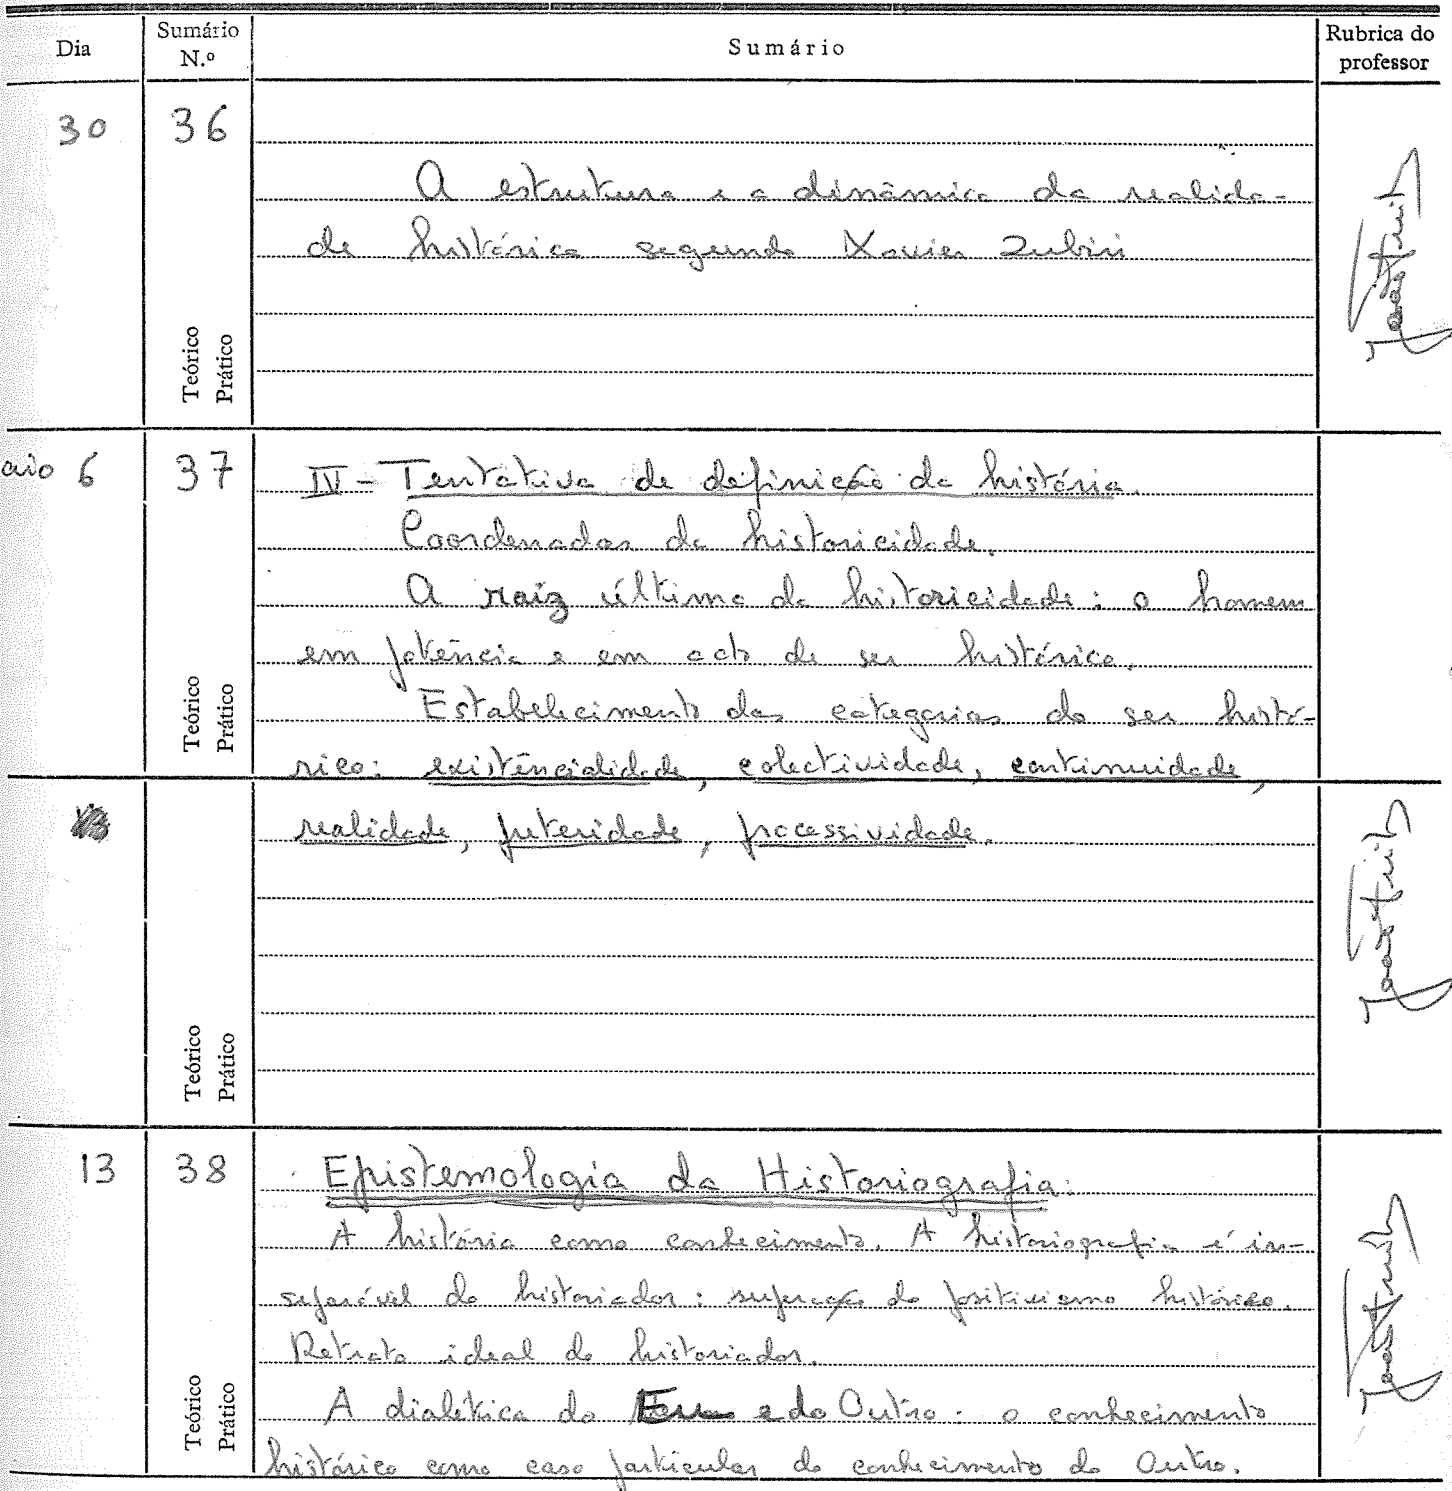 Dia
Sumário N.º
Sumário
Rubrica do professor
30
36
A estrutura e a dinâmica da realida-
de histórica segundo Xavier Zubiri
Teórico
Prático
aio 6
37
IV - Tentativa de definição da história.
Coordenadas da historicidade.
A raiz última da historicidade: o homem
em potência e em acto de ser histórico.
Estabelecimento das categorias do ser histó-
rico: existêncialidade, colectividade, continuidade,
Teórico
Prático
realidade, preteridade, processividade.
Teórico
Prático
13
38
Epistemologia da Historiografia:
A história como conhecimento. A historiografia é in-
separável do historiador: superação do positivismo histórico.
Retrato ideal do historiador.
A dialética do Eu e do Outro. o conhecimento
histórico como caso particular do conhecimento do Outro.
Teórico
Prático